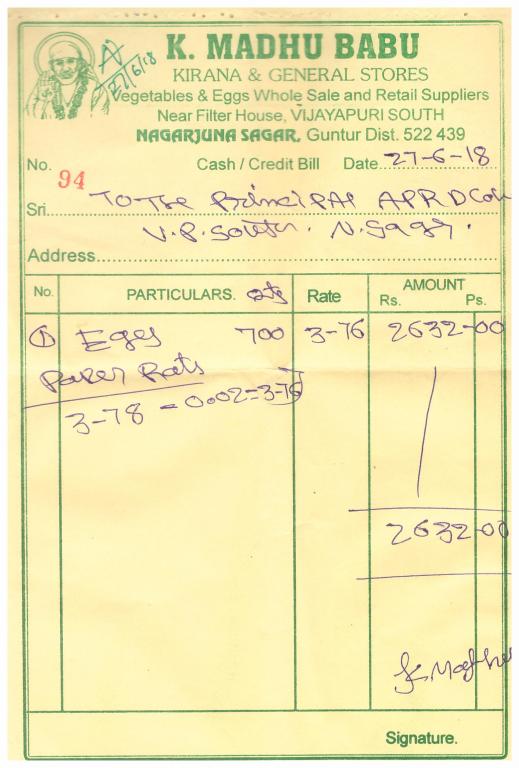 27/6/18
K. MADHU BABU
KIRANA & GENERAL STORES
Vegetables & Eggs Whole Sale and Retail Suppliers
Near Filter House, VIJAYAPURI SOUTH
NAGARJUNA SAGAR, Guntur Dist. 522 439
No. 94 Cash / Credit Bill Date 27-6-18
Sri. To The Principal APRDCol
V.P. South. N. Sagar.
Address
No. PARTICULARS. Qty Rate AMOUNT Rs. Ps.
① Eggs 700 3-76 2632-00
Paper Rats
3-78 - 0.02 = 3-76
2632-00
Signature.